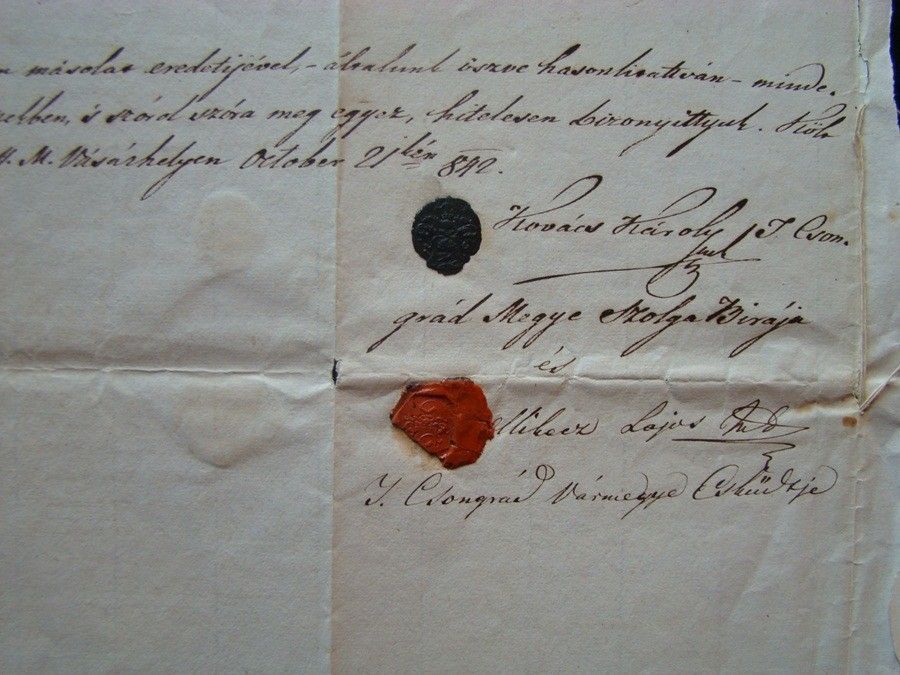 másolat eredetijével, – általunk öszve hasonlitattván – minde-
, 's szóról szóra meg egyez, hitelesen bizonyittyuk. Költ
H. M. Vásárhelyen October 21kén 842.
Kovács Károly T. Cson-
grád Megye Szolga Birája
és
Lajos
T. Csongrád Vármegye Esküdtje